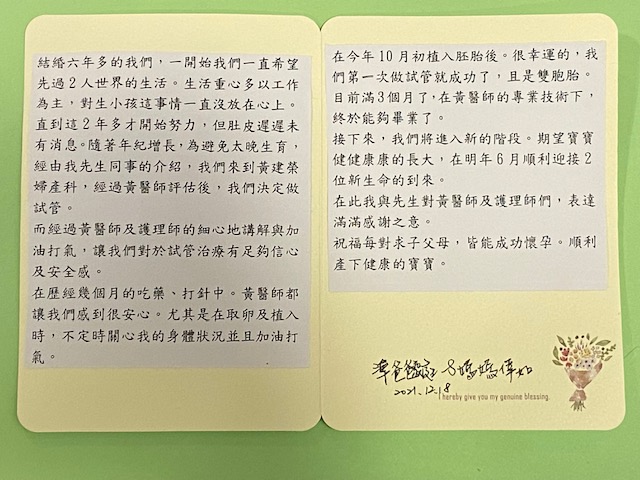 結婚六年多的我們，一開始我們一直希望
先過2人世界的生活。生活重心多以工作
為主，對生小孩這事情一直沒放在心上。
直到這2年多才開始努力，但肚皮遲遲未
有消息。隨著年紀增長，為避免太晚生育，
經由我先生同事的介紹，我們來到黃建榮
婦產科，經過黃醫師評估後，我們決定做
試管。
而經過黃醫師及護理師的細心地講解與加
油打氣，讓我們對於試管治療有足夠信心
及安全感。
在歷經幾個月的吃藥、打針中。黃醫師都
讓我們感到很安心。尤其是在取卵及植入
時，不定時關心我的身體狀況並且加油打
氣。
在今年10月初植入胚胎後。很幸運的，我
們第一次做試管就成功了，且是雙胞胎。
目前滿3個月了，在黃醫師的專業技術下，
終於能夠畢業了。
接下來，我們將進入新的階段。期望寶寶
健健康康的長大，在明年6月順利迎接2
位新生命的到來。
在此我與先生對黃醫師及護理師們，表達
滿滿感謝之意。
祝福每對求子父母，皆能成功懷孕。順利
產下健康的寶寶。
爸爸 媽媽
2021.12.18
I hereby give you my genuine blessing.